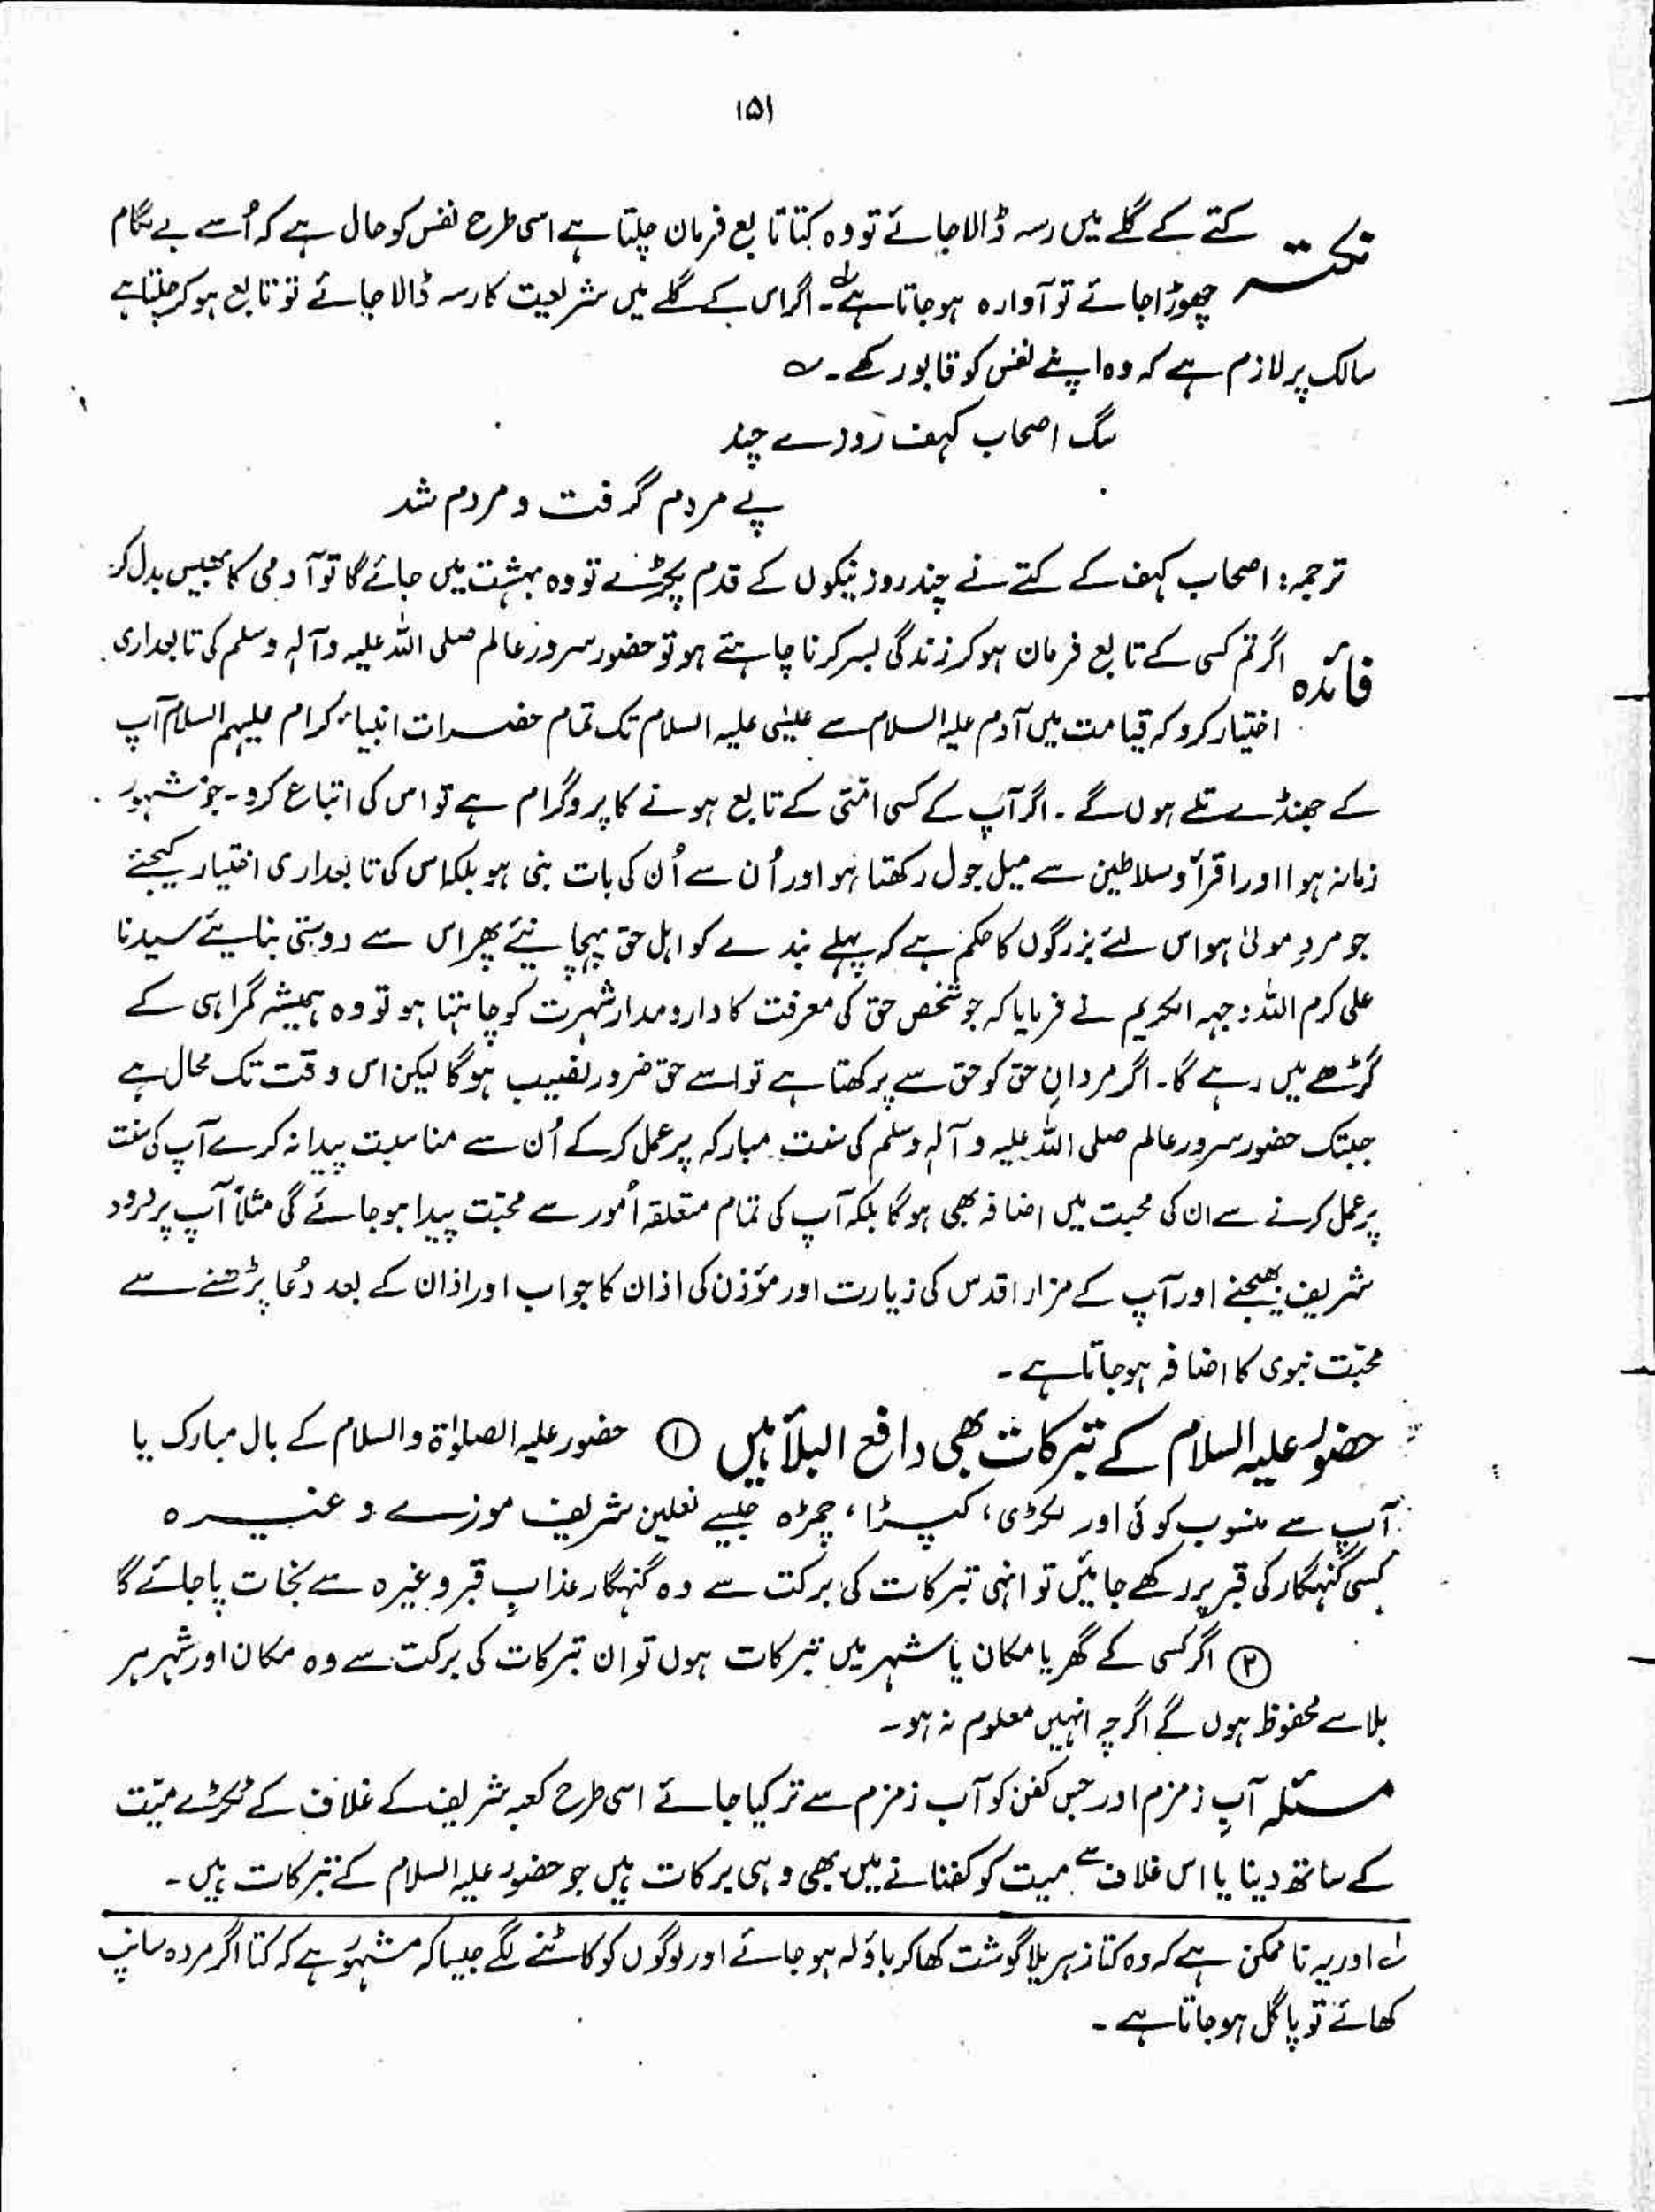 ۱۵۱
نکتہ کتے کے گلے میں رسہ ڈالا جائے تو وہ کتا تابع فرمان چلتا ہے اسی طرح نفس کو حال ہے کہ اُسے بے لگام
چھوڑا جائے تو آوارہ ہو جاتا ہے ۱؎۔ اگر اس کے گلے میں شریعت کا رسہ ڈالا جائے تو تابع ہو کر چلتا ہے
سالک پر لازم ہے کہ وہ اپنے نفس کو قابو رکھے۔ ؎
سگ اصحاب کہف روزے چند
پے مردم گرفت و مردم شد
ترجمہ: اصحاب کہف کے کتے نے چند روز نیکوں کے قدم پکڑے تو وہ بہشت میں جائے گا تو آدمی کا بھیس بدل کر
فائدہ اگر تم کسی کے تابع فرمان ہو کر زندگی بسر کرنا چاہتے ہو تو حضور سرور عالم صلی اللہ علیہ وآلہ وسلم کی تابعداری
اختیار کرو کہ قیامت میں آدم علیہ السلام سے عیسٰی علیہ السلام تک تمام حضرات انبیاء کرام علیہم السلام آپ
کے جھنڈے تلے ہوں گے۔ اگر آپ کے کسی امتی کے تابع ہونے کا پروگرام ہے تو اس کی اتباع کرو۔ جو مشہور
زمانہ ہو اور اقرآ و سلاطین سے میل جول رکھتا ہو اور اُن سے اُن کی بات بنی ہو بلکہ اس کی تابعداری اختیار کیجئے
جو مردِ مولیٰ ہو اس لئے بزرگوں کا حکم ہے کہ پہلے بندے کو اہل حق پہچانیئے پھر اس سے دوستی بنایئے سیدنا
علی کرم اللہ وجہہ الکریم نے فرمایا کہ جو شخص حق کی معرفت کا دارومدار شہرت کو چاہتا ہو تو وہ ہمیشہ گمراہی کے
گڑھے میں رہے گا۔ اگر مردانِ حق کو حق سے پرکھتا ہے تو اسے حق ضرور نصیب ہوگا لیکن اس وقت تک محال ہے
جبتک حضور سرور عالم صلی اللہ علیہ وآلہ وسلم کی سنت مبارکہ پر عمل کر کے اُن سے مناسبت پیدا نہ کرے آپ کی سنت
پر عمل کرنے سے ان کی محبت میں اضافہ بھی ہوگا بلکہ آپ کی تمام متعلقہ اُمور سے محبّت پیدا ہو جائے گی مثلاً آپ پر درود
شریف بھیجنے اور آپ کے مزار اقدس کی زیارت اور مؤذن کی اذان کا جواب اور اذان کے بعد دُعا پڑھنے سے
محبّت نبوی کا اضافہ ہو جاتا ہے۔
حضور علیہ السلام کے تبرکات بھی دافع البلآ ہیں ① حضور علیہ الصلوٰۃ والسلام کے بال مبارک یا
آپ سے منسوب کوئی اور لکڑی، کپڑا، چمڑہ جیسے نعلین شریف موزے وغیرہ
کسی گنہگار کی قبر پر رکھے جائیں تو انہی تبرکات کی برکت سے وہ گنہگار عذابِ قبر وغیرہ سے نجات پا جائے گا
② اگر کسی کے گھر یا مکان یا شہر میں تبرکات ہوں تو ان تبرکات کی برکت سے وہ مکان اور شہر ہر
بلا سے محفوظ ہوں گے اگرچہ انہیں معلوم نہ ہو۔
مسئلہ آبِ زمزم اور جس کفن کو آب زمزم سے تر کیا جائے اسی طرح کعبہ شریف کے غلاف کے ٹکڑے میّت
کے ساتھ دینا یا اس غلاف سے میت کو کفنانے میں بھی وہی برکات ہیں جو حضور علیہ السلام کے تبرکات ہیں۔
۱؎ اور یہ ناممکن ہے کہ وہ کتا زہریلا گوشت کھا کر باؤلہ ہو جائے اور لوگوں کو کاٹنے لگے جیسا کہ مشہور ہے کہ کتا اگر مردہ سانپ
کھائے تو پاگل ہو جاتا ہے۔